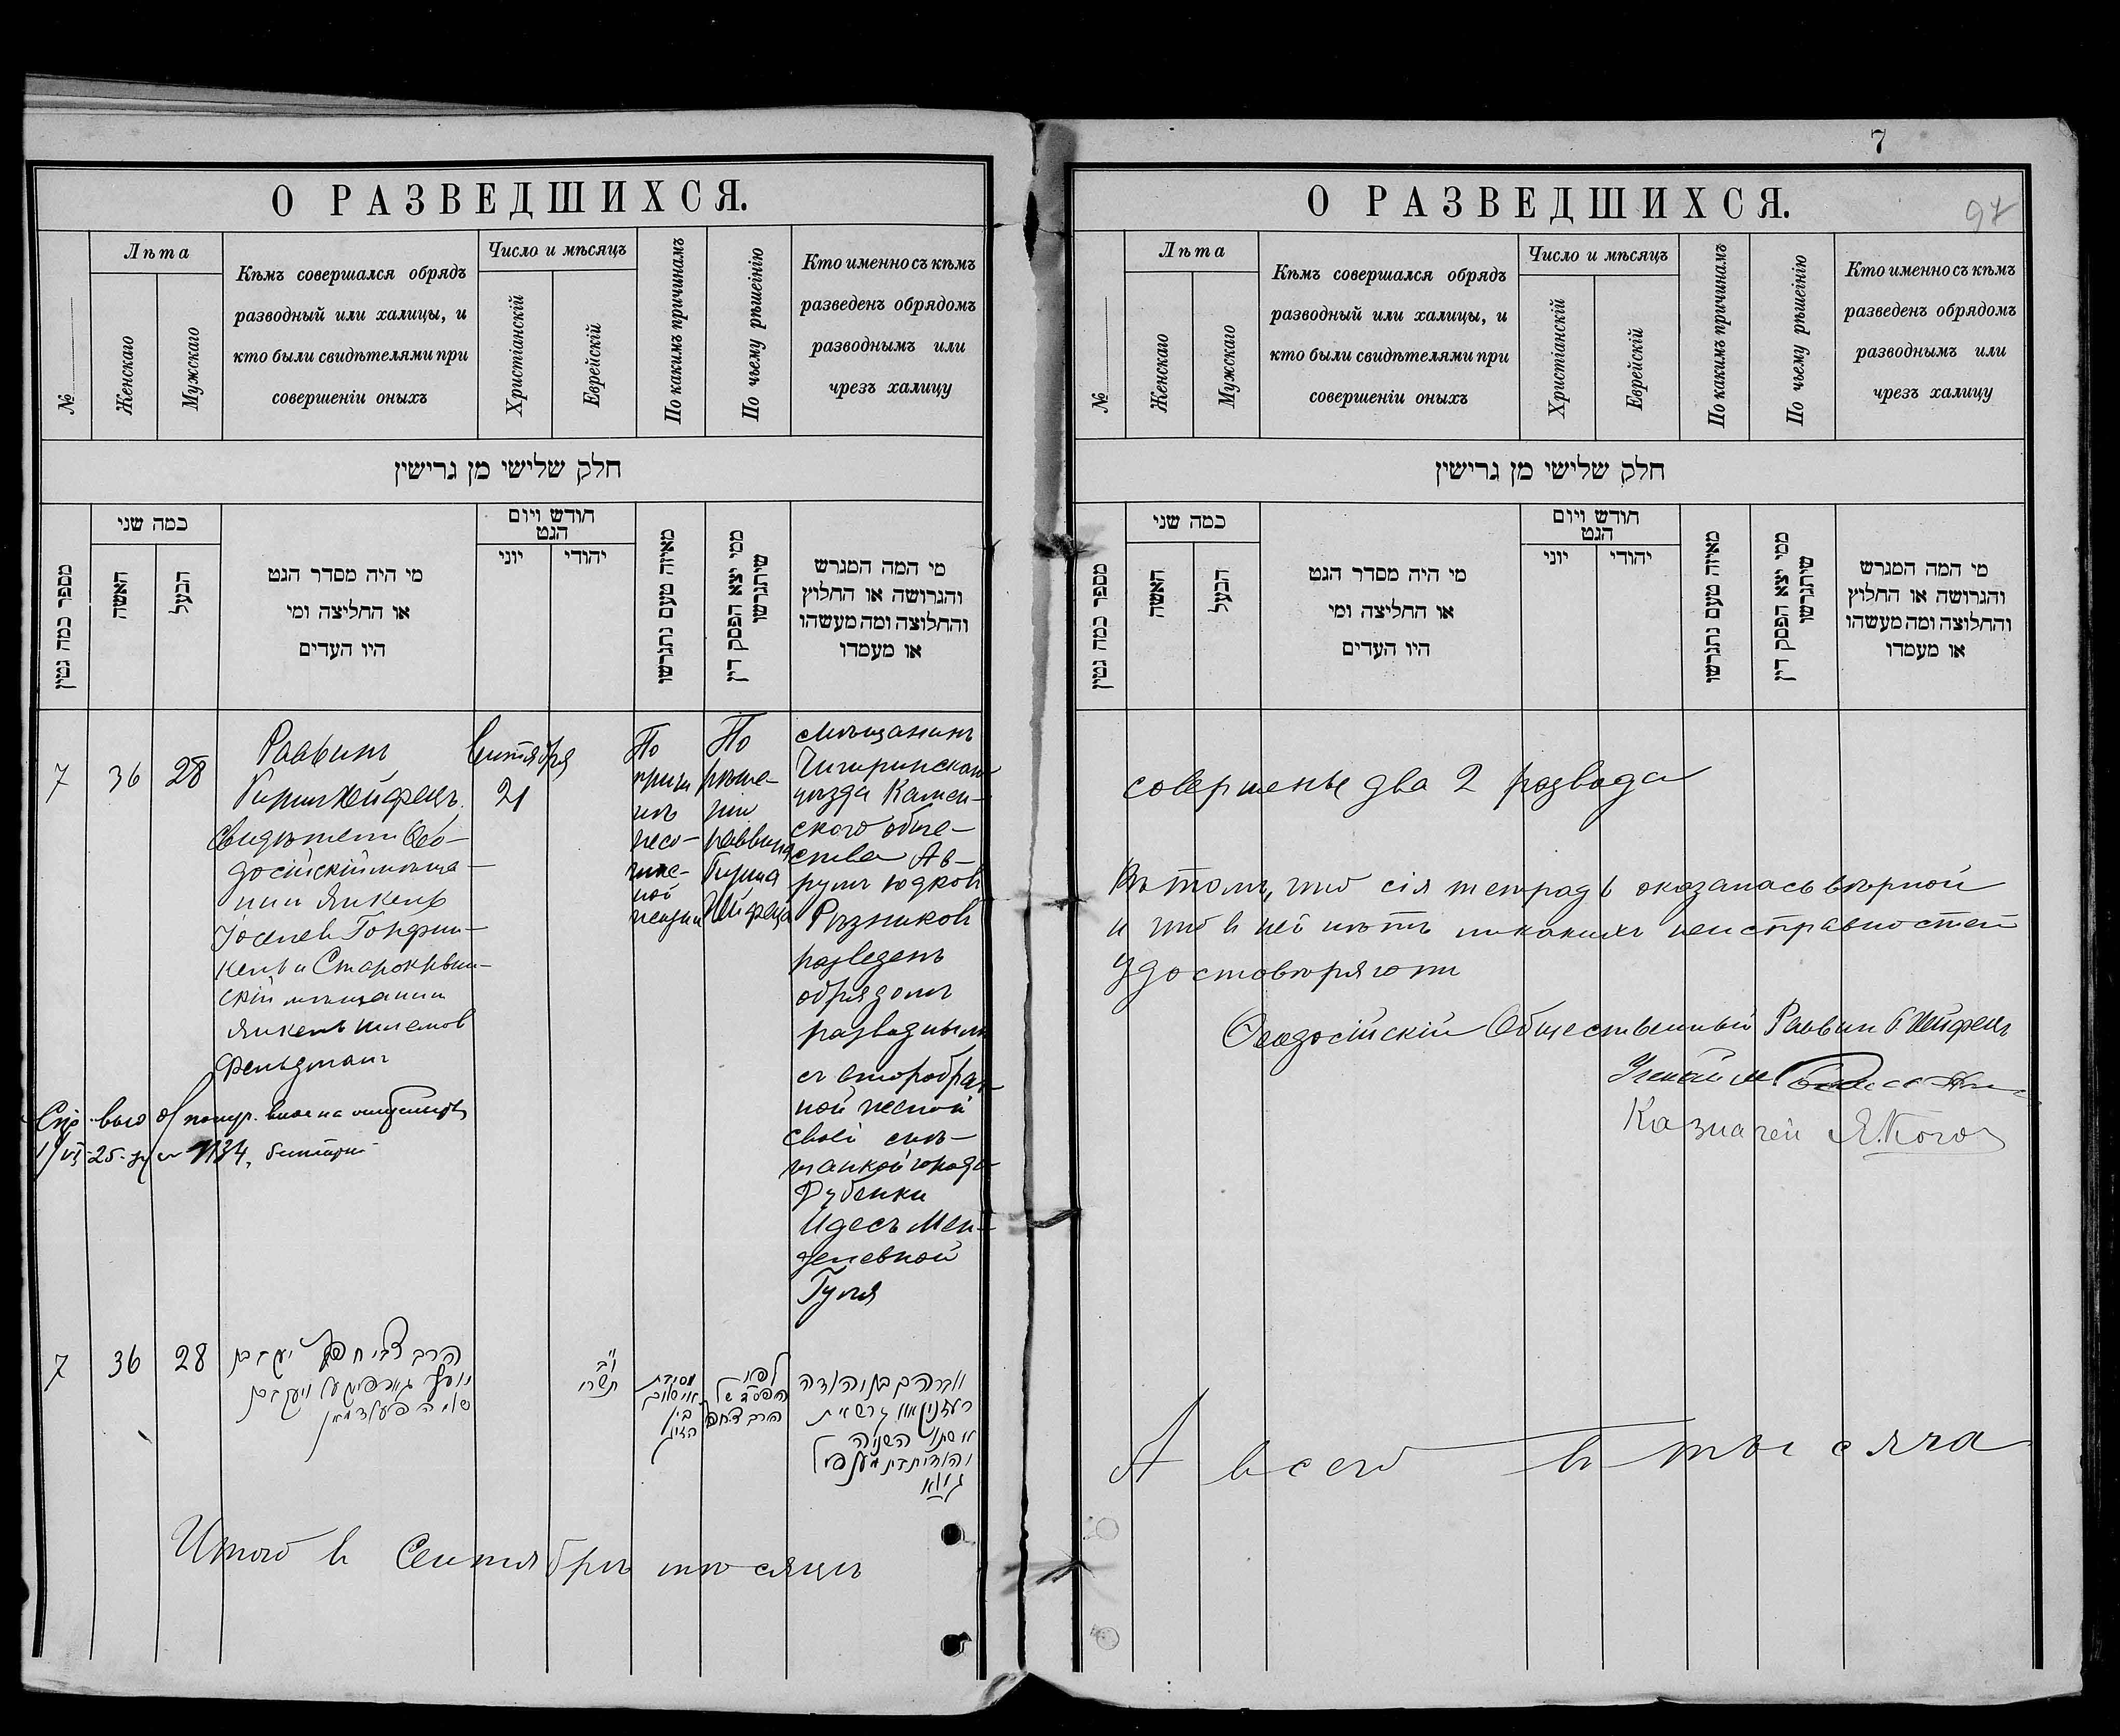 О РАЗВЕДШИХСЯ.
№
Лѣта
Женскаго
Мужскаго
Кѣмъ совершался обрядъ
разводный или халицы, и
кто были свидѣтелями при
совершеніи оныхъ
Число и мѣсяцъ
Христіанскій
Еврейскій
По какимъ причинамъ
По чьему рѣшеінію
Кто именно съ кѣмъ
разведенъ обрядомъ
разводнымъ или
чрезъ халицу
חלק שלישי מן גרישין
מספר כמה גטין
כמה שני
האשה
הבעל
מי היה מסדר הגט
או החליצה ומי
היו העדים
חודש ויום
הגט
יוני
יהודי
מאיזה טעם נתגרשו
ממי יצא הפסק דין
שיתגרשו
מי המה המגרש
והגרושה או החלוץ
והחלוצה ומה מעשהו
או מעמדו
7
36
28
Раввинъ
Гирш Хейфецъ
Свидѣтели Ѳео-
досійскій мѣща-
нин Янкель
Іоселев Гонфин-
кель и Старокрым-
скій мѣщанин
Янкель Шлемов
Фельдманъ
Сентября
21
По
причи
нѣ
несо-
гла-
ной
жизни
По
рѣше-
нію
раввина
Гирша
Хейфеца
Мѣщанинъ
Чигиринскаго
уѣзда Камен-
скаго обще-
ства Ав-
румъ Юдков
Рѣзников
разведенъ
обрядомъ
разводнымъ
съ второбрач-
ной женой
своей
мѣ-
щанкой города
Дубенки
Идесъ Мен-
делевной
Гуля
1134
7
36
28
הרב צבי חפץ יעקב בן
יוסף גאנפינקעל ויעקב בן
שלמה פעלדמאן
י"ב
תשרי
מסבת
אי שלום
בין
הזוג
לפי
הפס"ד של
הרב צ. חפץ
אברהם בן יהודה
רעזניקאוו גרש את
אשתו השניה
Итого в Сентябрѣ мѣсяцѣ
7
97
О РАЗВЕДШИХСЯ.
№
Лѣта
Женскаго
Мужскаго
Кѣмъ совершался обрядъ
разводный или халицы, и
кто были свидѣтелями при
совершеніи оныхъ
Число и мѣсяцъ
Христіанскій
Еврейскій
По какимъ причинамъ
По чьему рѣшеінію
Кто именно съ кѣмъ
разведенъ обрядомъ
разводнымъ или
чрезъ халицу
חלק שלישי מן גרישין
מספר כמה גטין
כמה שני
האשה
הבעל
מי היה מסדר הגט
או החליצה ומי
היו העדים
חודש ויום
הגט
יוני
יהודי
מאיזה טעם נתגרשו
ממי יצא הפסק דין
שיתגרשו
מי המה המגרש
והגרושה או החלוץ
והחלוצה ומה מעשהו
או מעמדו
совершены два 2 развода
Въ томъ, что сія тетрадь оказалась вѣрной
и что в ней нѣтъ никакихъ неисправностей
удостовѣряютъ
Ѳеодосійскій Общественный Раввин Г Хейфецъ
Ученый
Казначей Я. Коган
А всего в тысяча